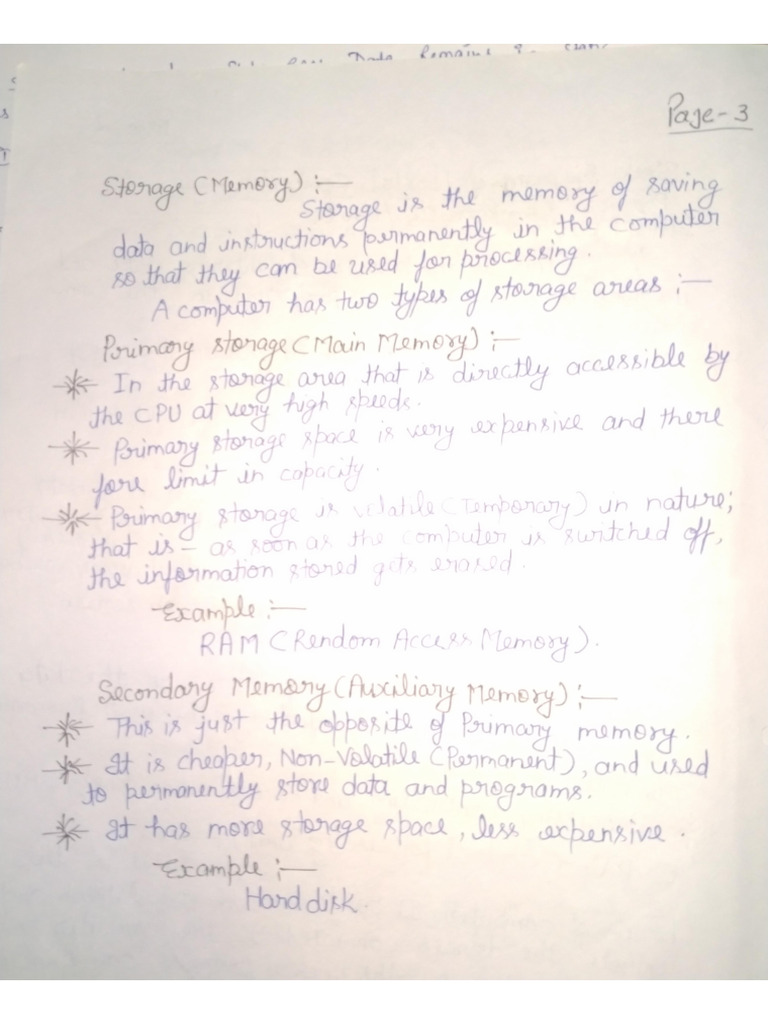 Data Remains
Page-3
Storage (Memory) :—
Storage is the memory of saving
data and instructions permanently in the computer
so that they can be used for processing.
A computer has two types of storage areas :—
Primary storage (Main Memory) :—
In the storage area that is directly accessible by
the CPU at very high speeds.
Primary storage space is very expensive and there
fore limit in capacity.
Primary storage is volatile (Temporary) in nature;
that is – as soon as the computer is switched off,
the information stored gets erased.
Example :—
RAM (Rendom Access Memory).
Secondary Memory (Auxiliary Memory) :—
This is just the opposite of Primary memory.
It is cheaper, Non-Volatile (Permanent), and used
to permanently store data and programs.
It has more storage space, less expensive.
Example :—
Hard disk.